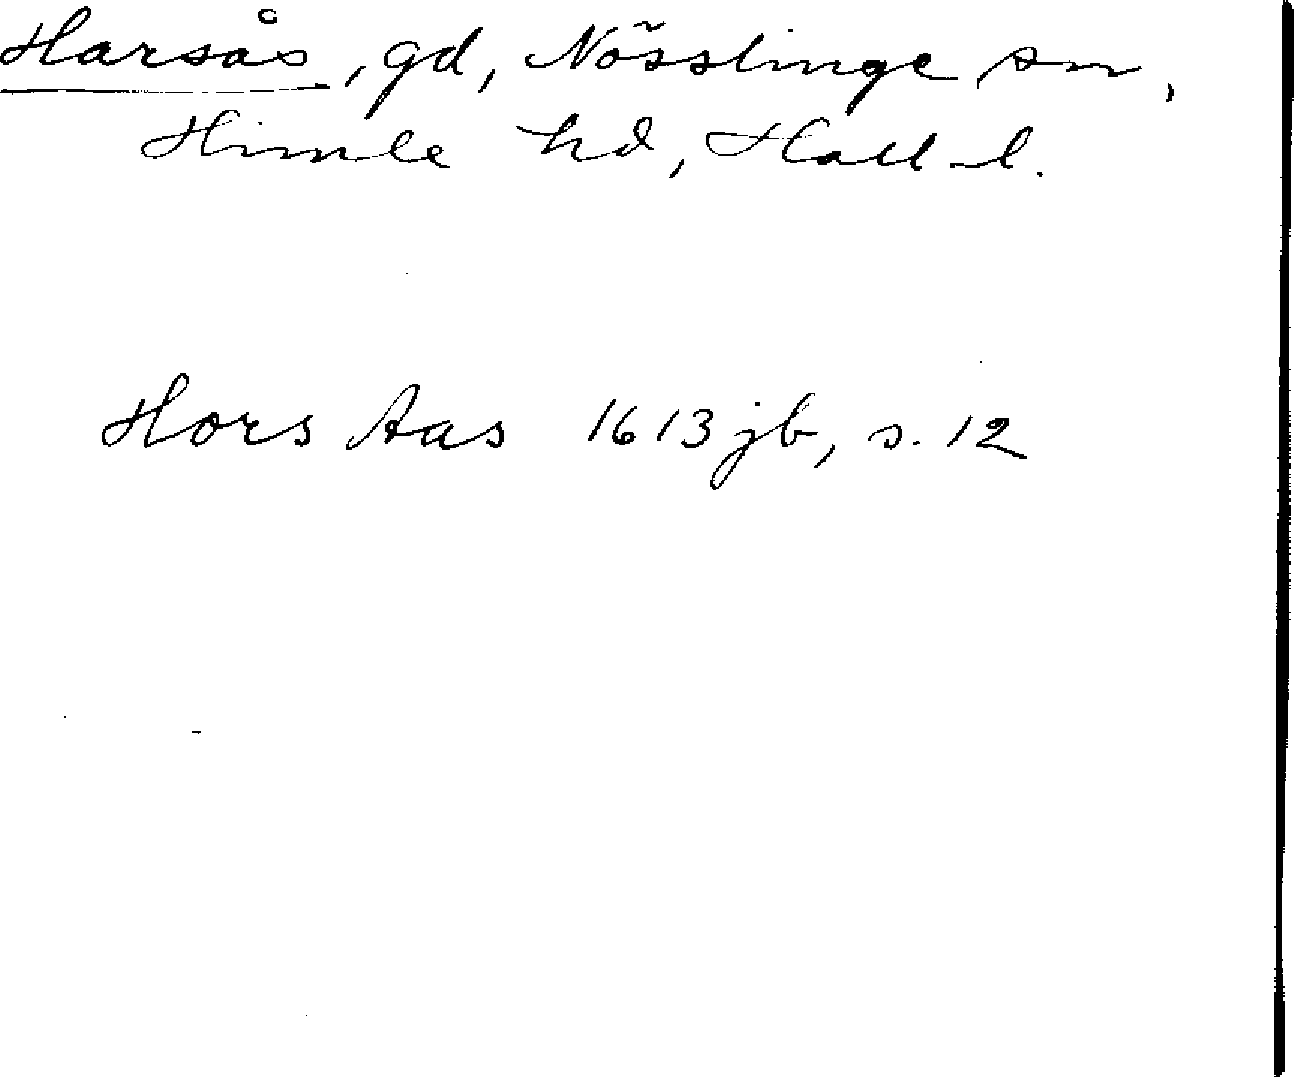 Harsås, gd, Nösslinge sn,
Himle hd, Hall. l.
Hors Aas 1613 jb, s. 12